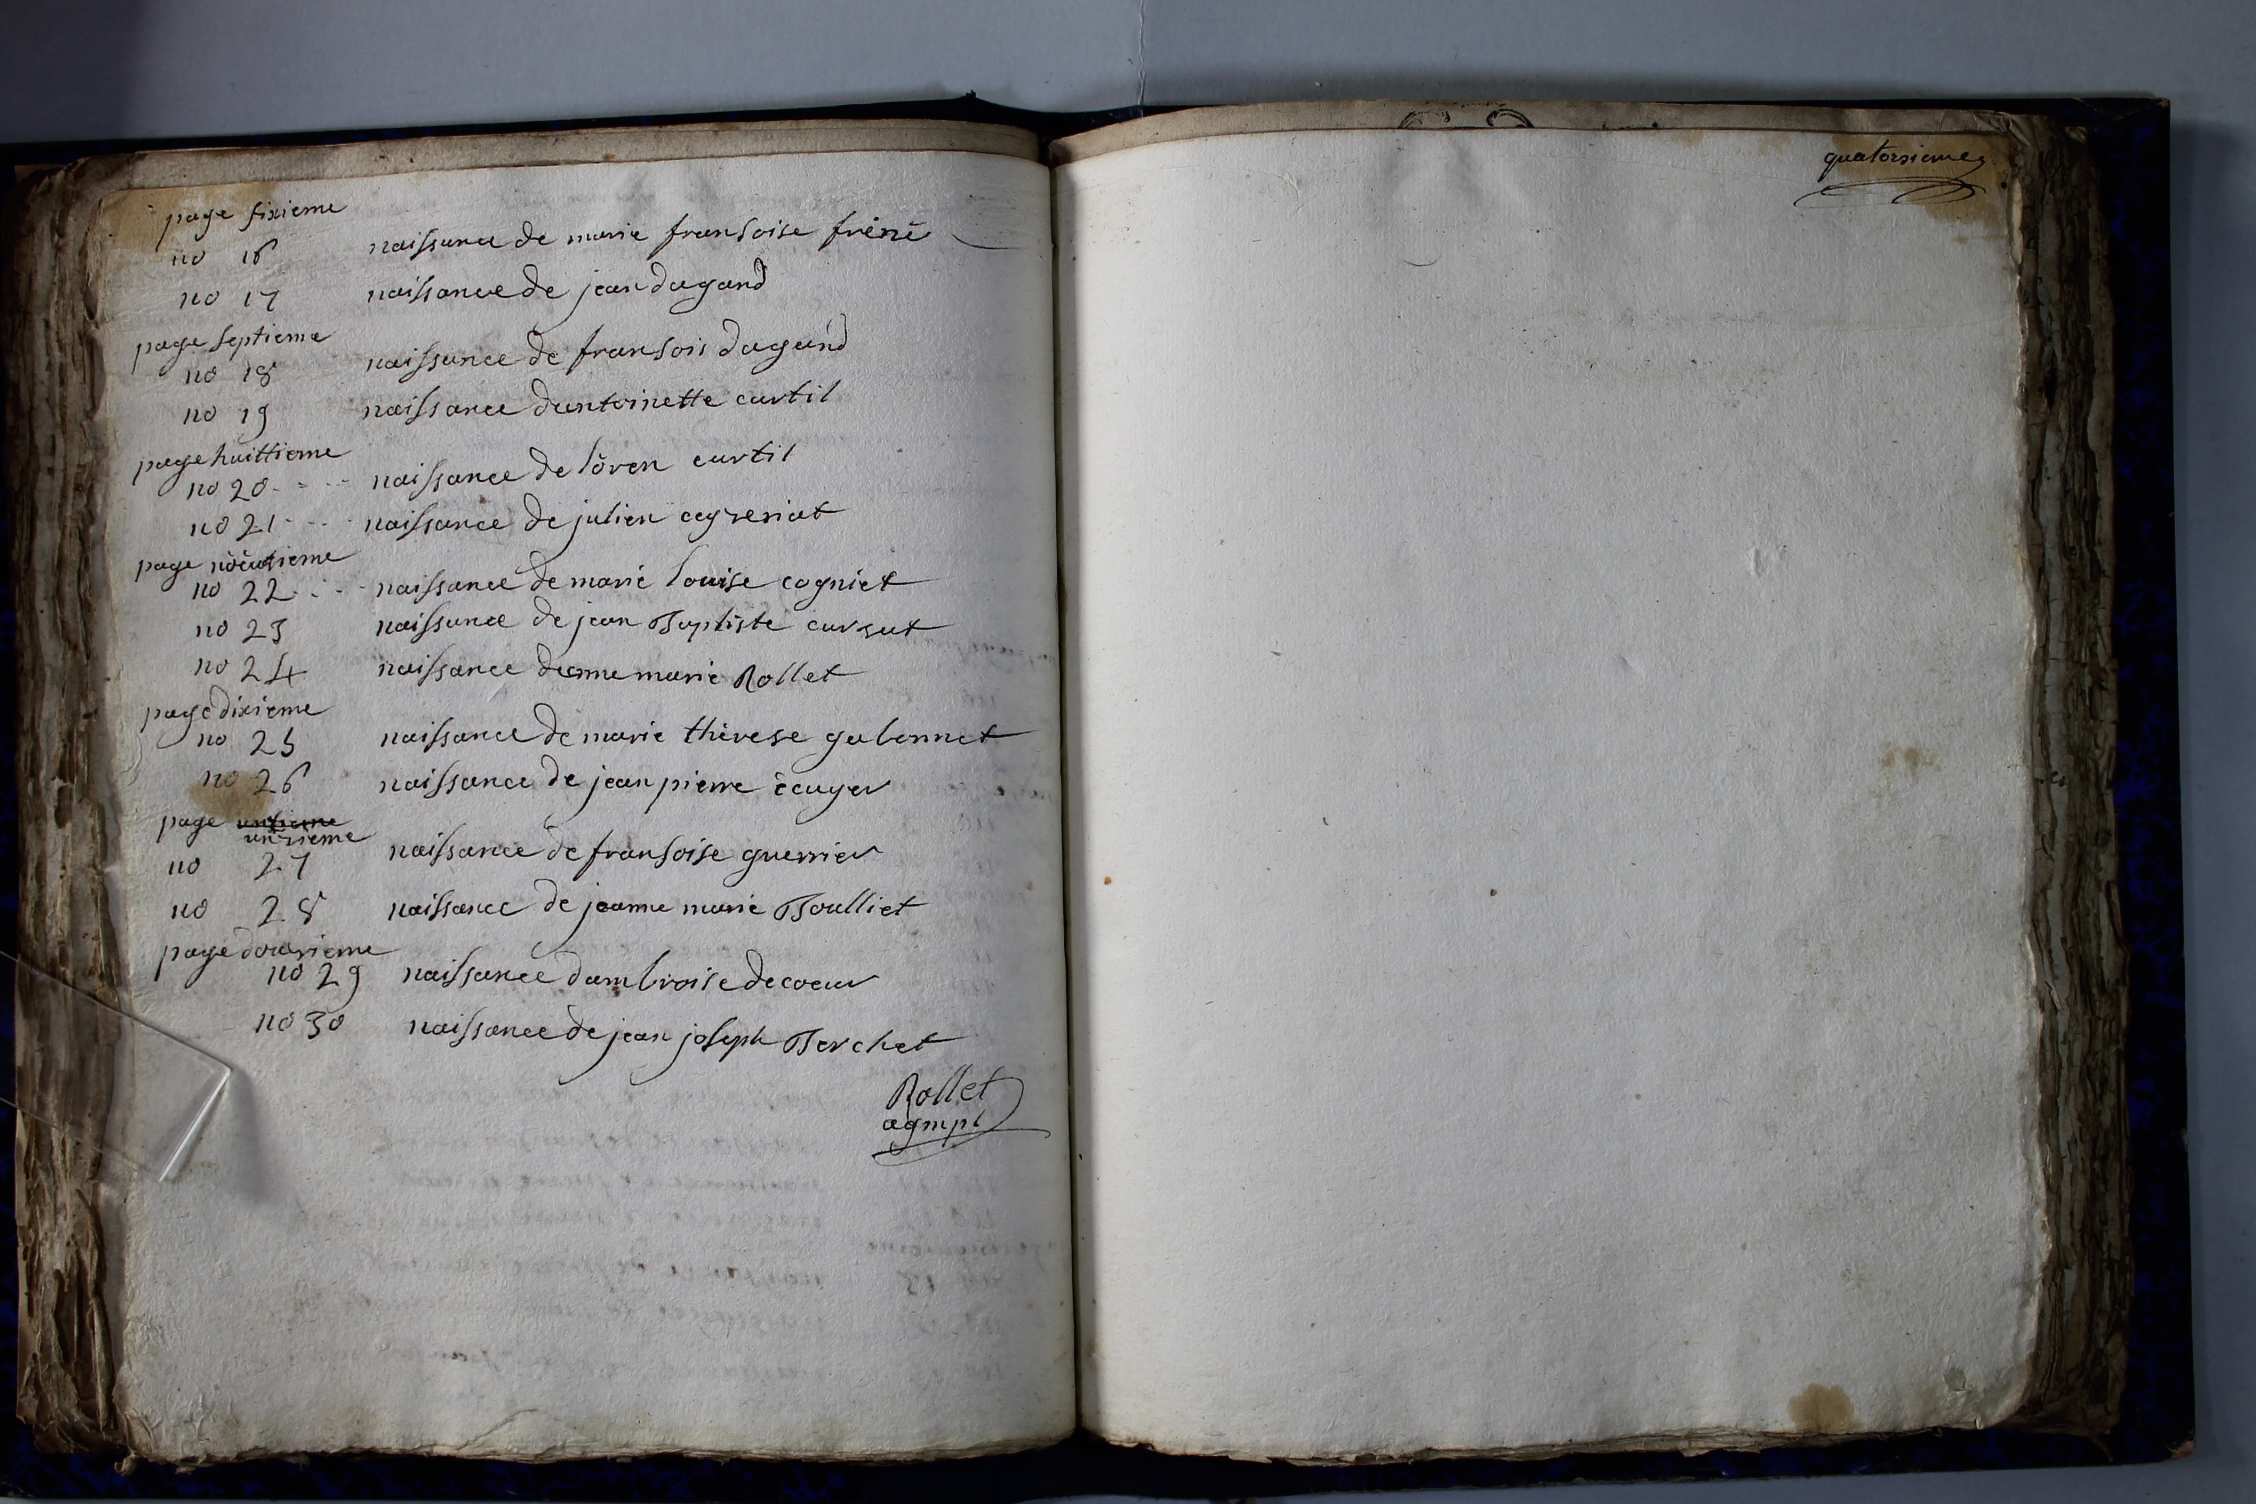 page sixieme
no 16 naissance de marie fransoise frene
no 17 naissance de jean dagand
page septieme
no 18 naissance de fransois dagand
no 19 naissance dantoinette curtil
page huittieme
no 20 - - - - naissance de loren curtil
no 21 - - - - naissance de julien ceyzeriat
page
no 22 - - - - naissance de marie louise cogniet
no 23 naissance de jean Baptiste
no 24 naissance danne marie Rollet
page dixieme
no 25 naissance de marie thèrese gabonnet
no 26 naissance de jean pierre ècuyer
page
unzieme
no 27 naissance de fransoise guerrier
no 28 naissance de jeanne marie Boulliet
page douzieme
no 29 naissance dambroise decoeur
no 30 naissance de jean joseph Berchet
Rollet
agmpl
quatorzieme